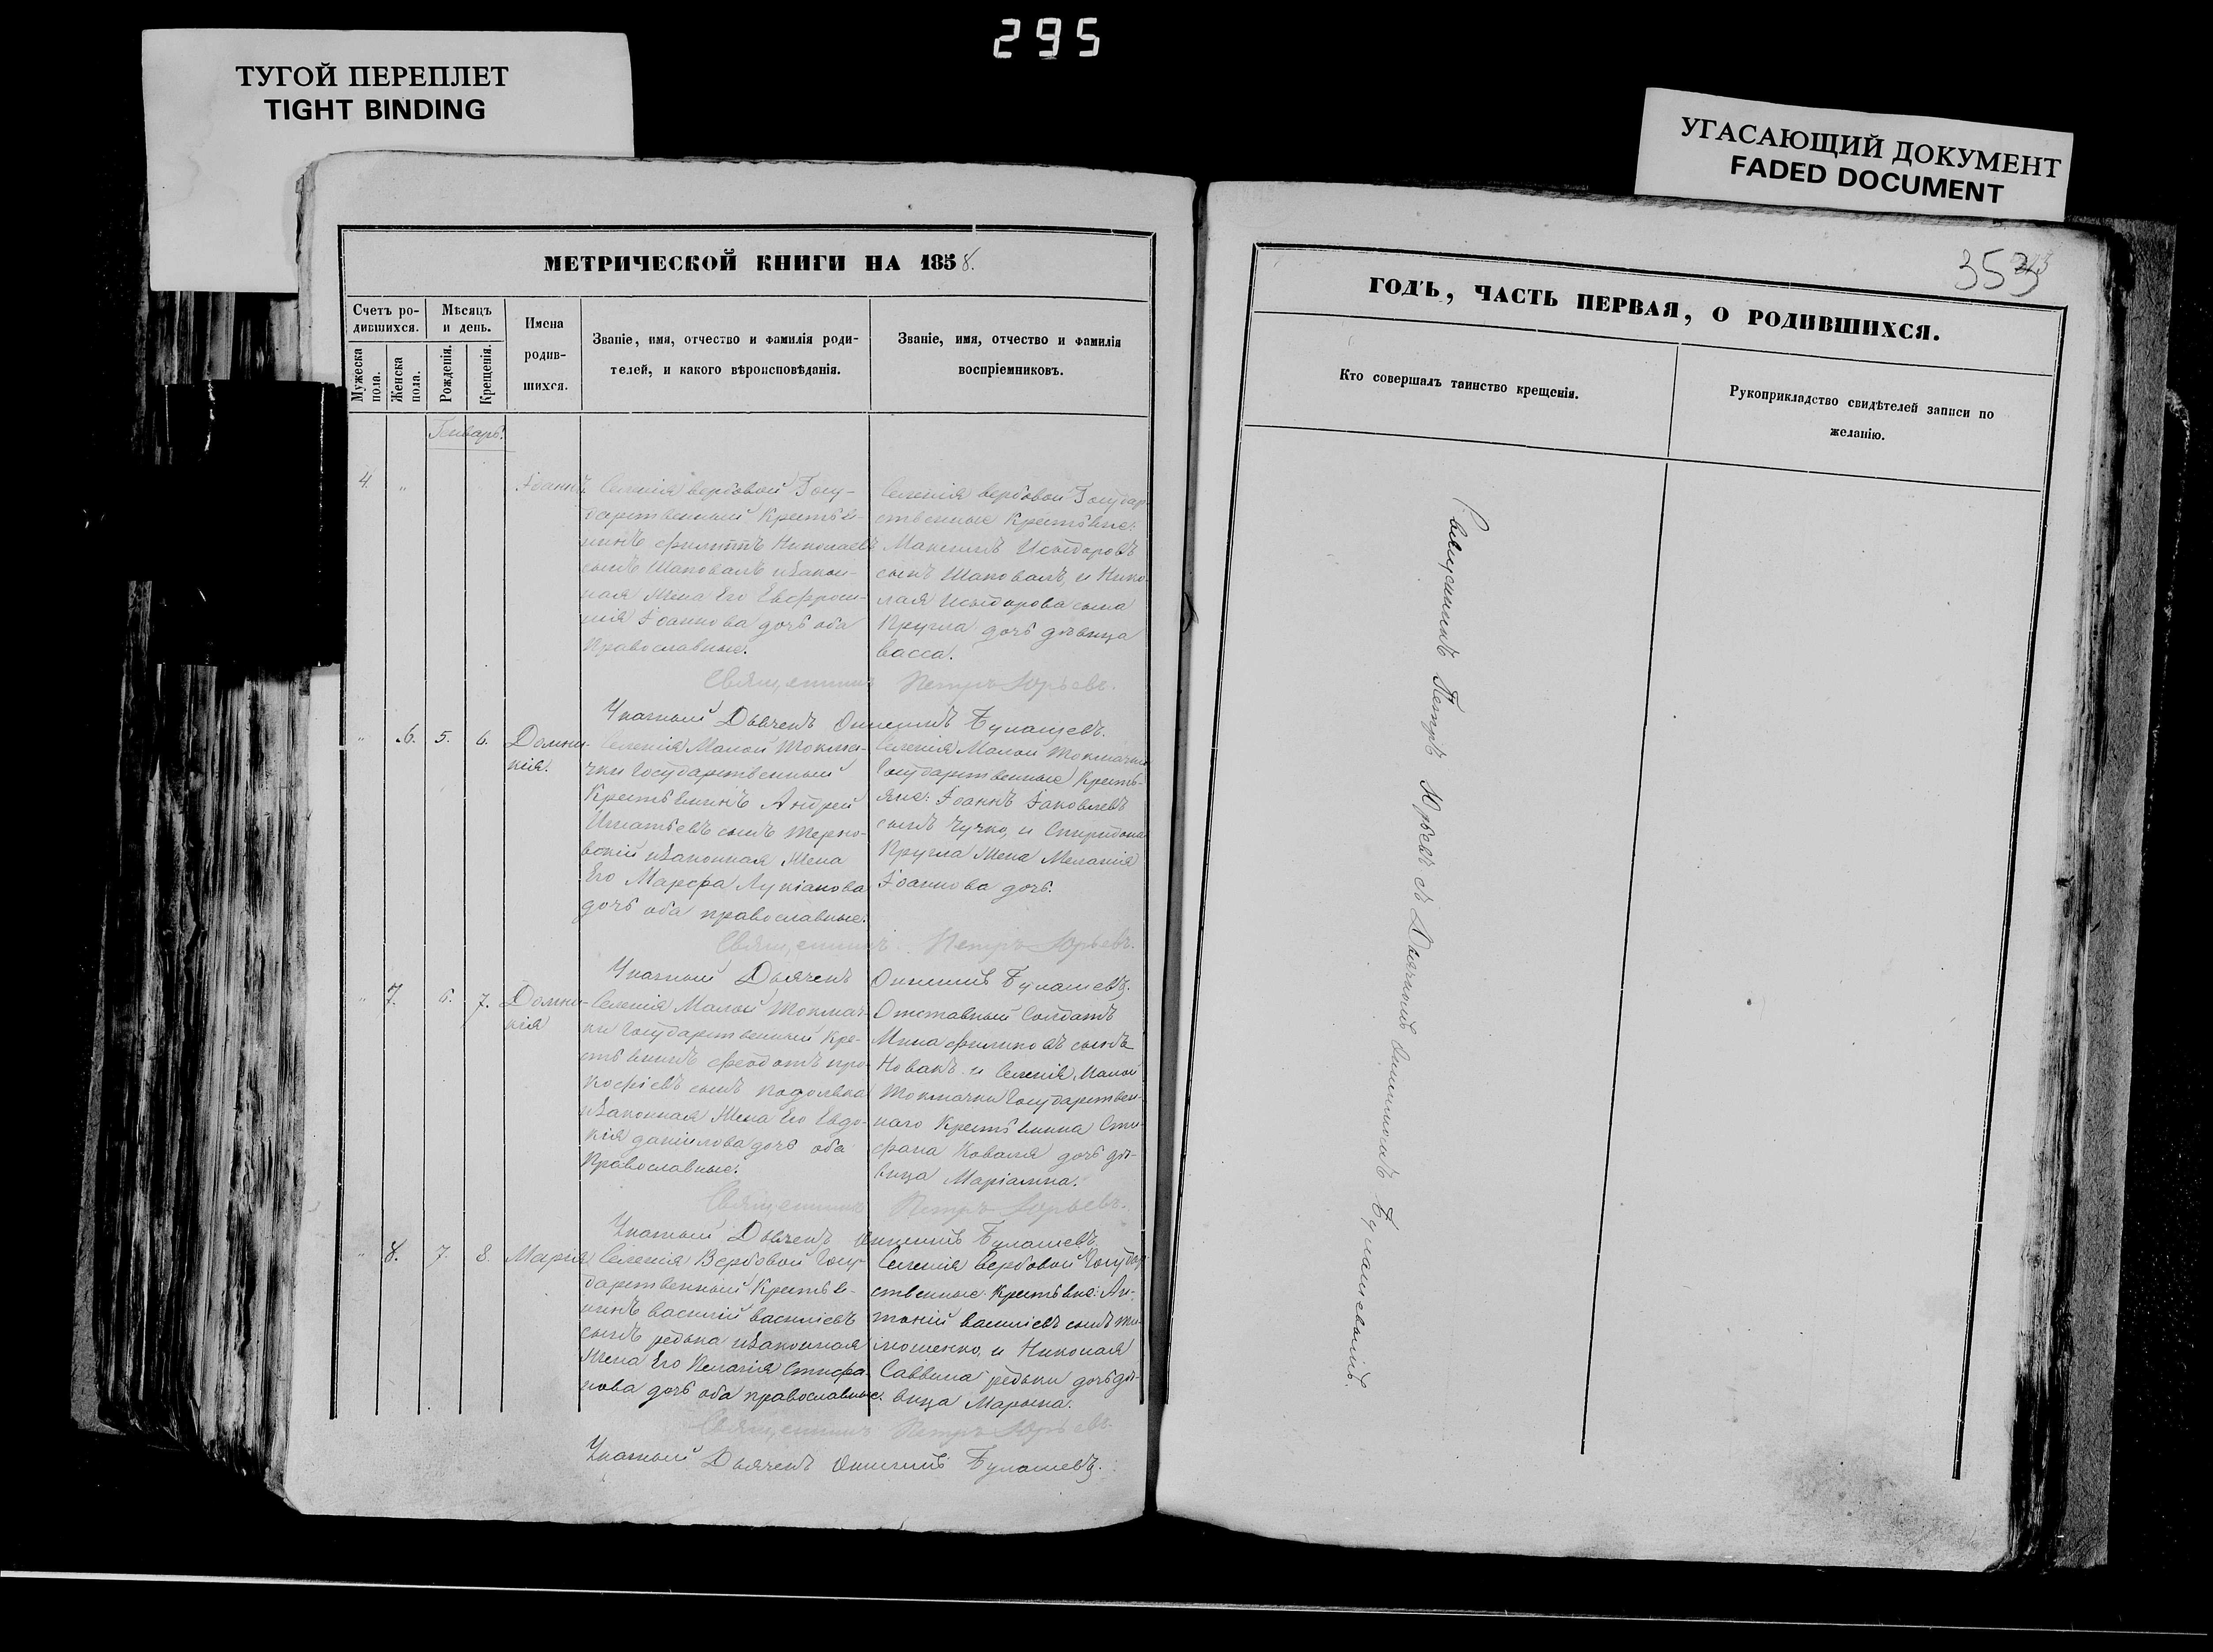 295
ТУГОЙ ПЕРЕПЛЕТ
TIGHT BINDING
УГАСАЮЩИЙ ДОКУМЕНТ
FADED DOCUMENT
МЕТРИЧЕСКОЙ КНИГИ НА 1858.
Счетъ ро-
дившихся.
Мѣсяцъ
и день.
Мужеска
пола.
Женска
пола.
Рожденія.
Крещенія.
Имена
родив-
шихся.
Званіе, имя, отчество и фамилія роди-
телей, и какого вѣроисповѣданія.
Званіе, имя, отчество и фамилія
воспріемниковъ.
Генварь.
4. „
Іоаннъ.
Селенія Вербовой Госу-
дарственный Крестья-
нинъ Филиппъ Николаевъ
сынъ Шаповалъ изакон-
ная Жена Его Евфроси-
нія Іоаннова дочь оба
Православные.
Селенія Вербовой Государ-
ственные Крестьяне:
Максимъ Исидоровъ
сынъ Шаповалъ, и Нико-
лая Исидорова сына
Кругла дочь дѣвица
Васса.
Священникъ Петръ Юрьевъ.
Указный Дьячекъ Булашевъ.
„ 6. 5. 6.
Домни-
кія.
Селенія Малой Токма-
чки Государственный
Крестьянинъ Андрей
Игнатьевъ сынъ Терно-
вскій изаконная Жена
Его Марфа Лукіанова
дочь оба православные.
Селенія Малой Токмачки
Государственные Кресть-
яне: Іоаннъ Іаковлевъ
сынъ Чучко, и Спиридона
Кругла Жена Меланія
Іоаннова дочь.
Священникъ Петръ Юрьевъ.
Указный Дьячекъ Булашевъ.
„ 7. 6. 7.
Домни-
кія
Селенія Малой Токмач-
ки Государственный Кре-
стьянинъ Феодотъ Про-
кофіевъ сынъ Подолька
изаконная Жена Его Евдо-
кія Даніилова дочь оба
Православные.
Отставный Солдатъ
Мина Филиповъ сынъ
Новакъ и Селенія Малой
Токмачки Государствен-
наго Крестьянина Сте-
фана Коваля дочь дѣ-
вица Маріамна.
Священникъ Петръ Юрьевъ.
Указный Дьячекъ Булашевъ.
„ 8. 7. 8.
Марія
Селенія Вербовой Госу-
дарственный Крестья-
нинъ Василій Василіевъ
сынъ Редька изаконная
Жена Его Пелагія Стефа-
нова дочь оба православные.
Селенія Вербовой Государ-
ственные Крестьяне: Ан-
тоній Василіевъ сынъ Ти-
мошенко, и Николая
Саввина Редьки дочь дѣ-
вица Марьяна.
Священникъ Петръ Юрьевъ.
Указный Дьячекъ Булашевъ.
353
ГОДЪ, ЧАСТЬ ПЕРВАЯ, О РОДИВШИХСЯ.
Кто совершалъ таинство крещенія.
Рукоприкладство свидѣтелей записи по
желанію.
Священникъ Петръ Юрьевъ съ Дьячкомъ Булашевымъ.